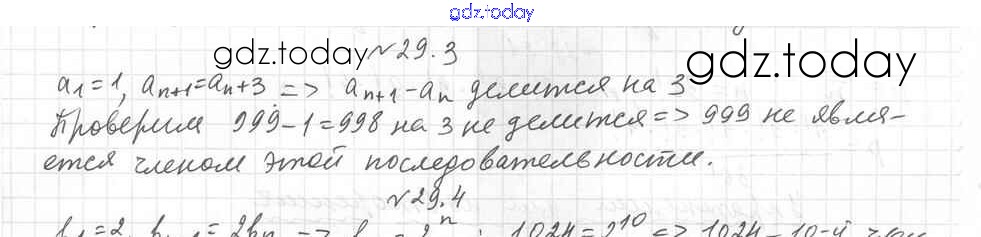 gdz.today
gdz.today №29.3 gdz.today
a₁=1, aₙ₊₁=aₙ+3 => aₙ₊₁-aₙ делится на 3
Проверим 999-1=998 на 3 не делится => 999 не явля-
ется членом этой последовательности.
№29.4
1024=2¹⁰ => 1024-10-й